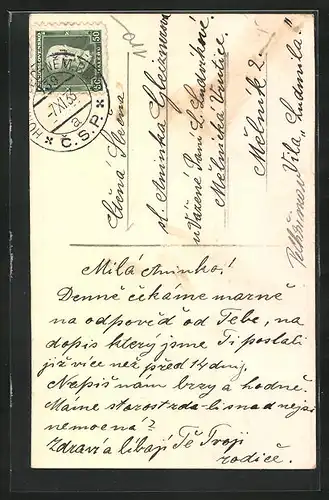 ČESKOSLOVENSKO
50
50
-7.XI.35
Č.S.P.
Ctěná Slečna
sl. Aninka Gleissnerová
u Vážené Paní L. Ludvíkové
Mělnická Vrutice
Mělník 2.
Vila „Ludmila“
Milá Aninko!
Denně čekáme marně
na odpověď od Tebe, na
dopis který jsme Ti poslali
již více než před 14 dny.
Nepiš nám brzy a hodně.
Máme starost zda-li snad nejsi
nemocna?
Zdraví a líbají Tě Tvoji
rodiče.